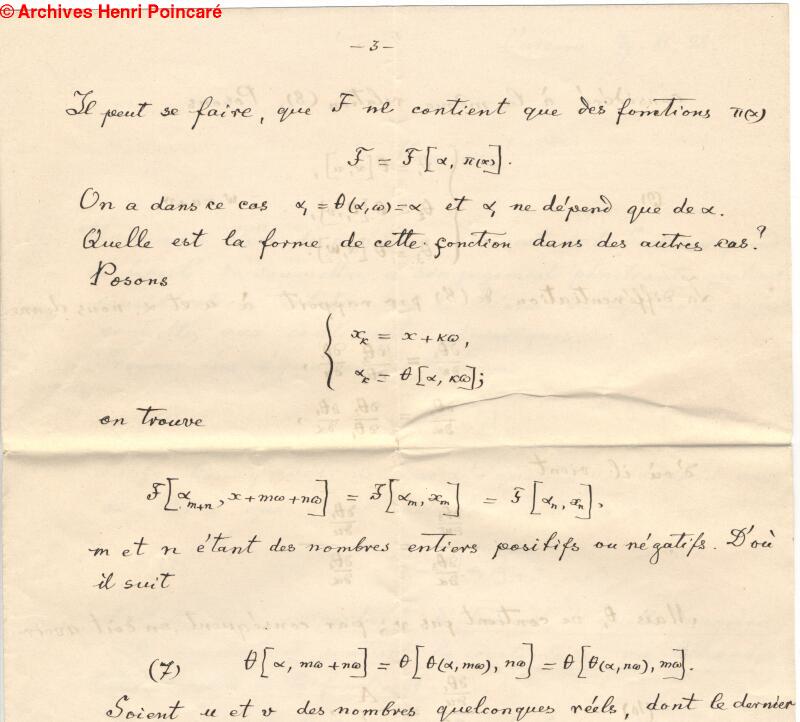 © Archives Henri Poincaré
— 3 —
Il peut se faire, que F ne contient que des fonctions π(x)
F = F[α, π(x)].
On a dans ce cas α₁ = θ(α,ω) = α et α₁ ne dépend que de α.
Quelle est la forme de cette fonction dans des autres cas?
Posons
{ xₖ = x + κω,
αₖ = θ[α, κω];
on trouve
F[αₘ₊ₙ, x+mω+nω] = F[αₘ, xₘ] = F[αₙ, xₙ],
m et n étant des nombres entiers positifs ou négatifs. D'où
il suit
(7) θ[α, mω+nω] = θ[θ(α,mω), nω] = θ[θ(α,nω), mω].
Soient u et v des nombres quelconques réels, dont le dernier